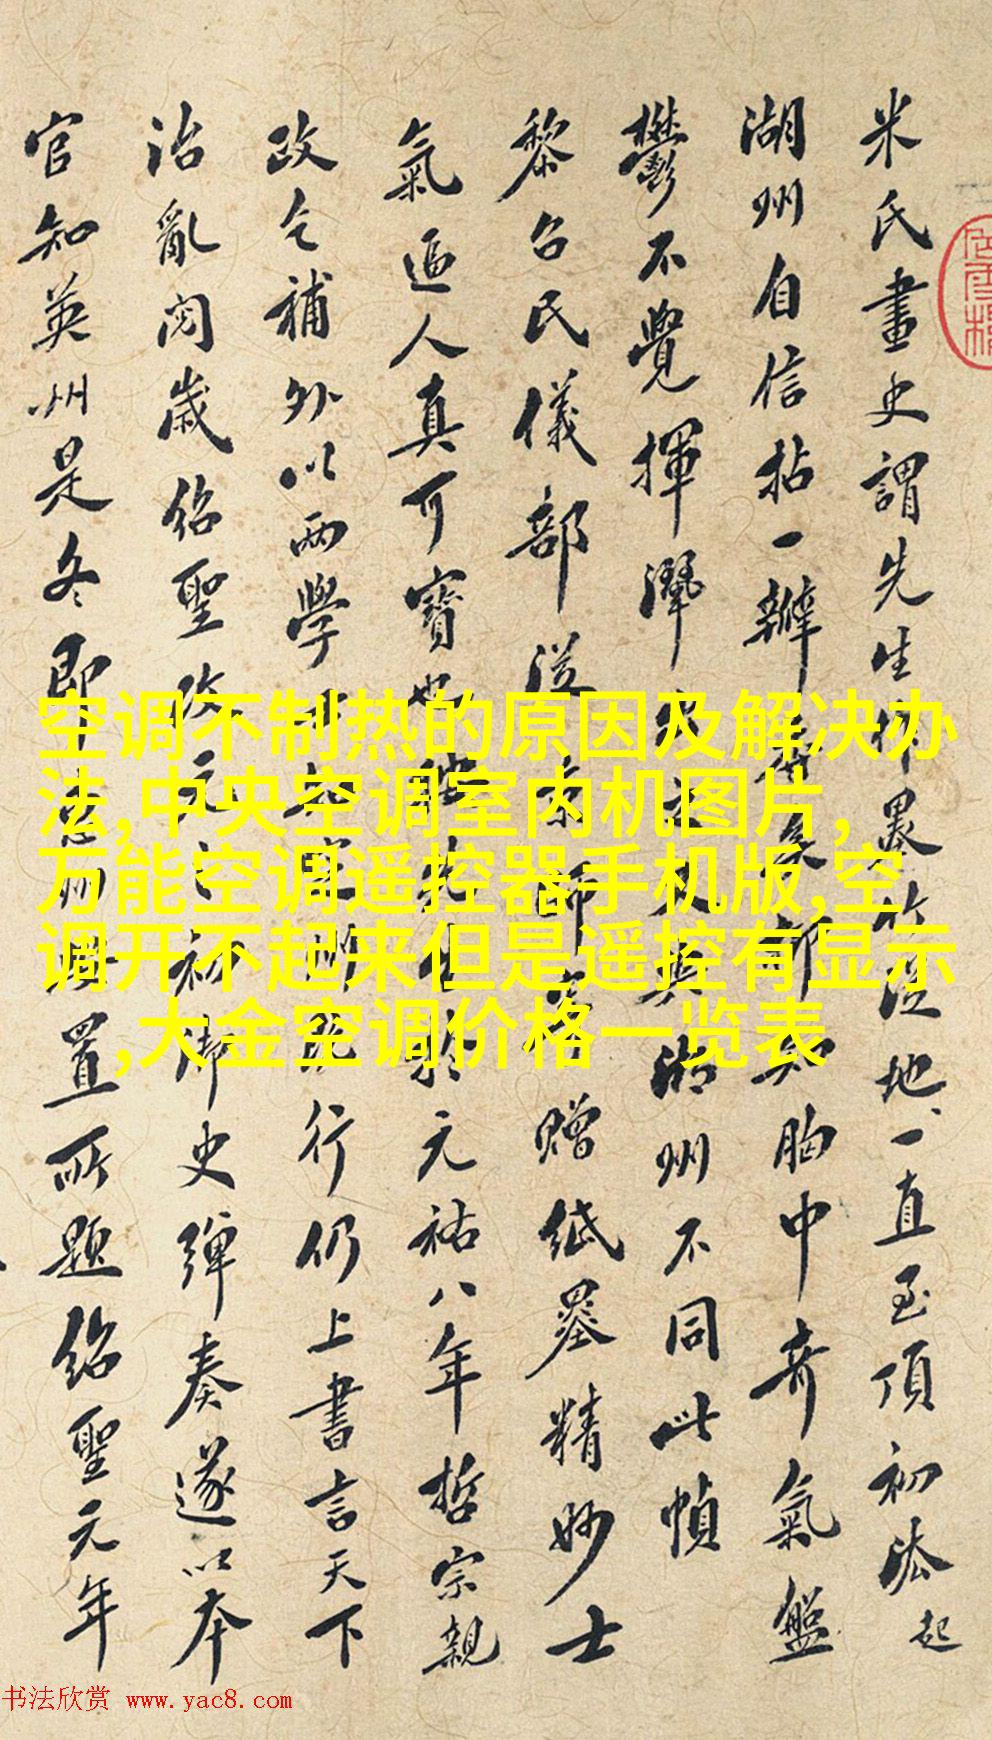 米氏畫史謂先生作墨竹從地一直至頂初法起
湖州自信拈一瓣香 却知胸中奇氣盤
鬱不覺揮灑 與湖州不同此幀
黎召民儀部從京師寄贈紙墨精妙士
氣逼人真可寶也 元祐八年哲宗親
政乞補外以兩學士知定州 行仍上書言天下
治亂閱歲紹聖改元之初御史彈奏遂以本
官知英州是冬即惠州 置所題紹聖元年
空调不制热的原因及解决办
法,中央空调室内机图片,
万能空调遥控器手机版,空
调开不起来但是遥控有显示
,大金空调价格一览表
书法欣赏 www.yac8.com